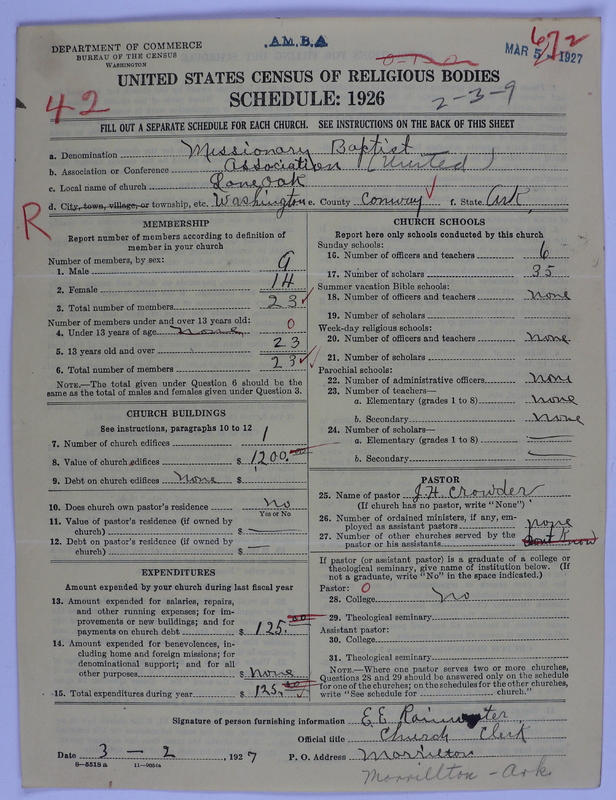 A.M.B.A
672
DEPARTMENT OF COMMERCE
BUREAU OF THE CENSUS
WASHINGTON
MAR 5 1927
UNITED STATES CENSUS OF RELIGIOUS BODIES
SCHEDULE: 1926
42
2-3-9
FILL OUT A SEPARATE SCHEDULE FOR EACH CHURCH. SEE INSTRUCTIONS ON THE BACK OF THIS SHEET
a. Denomination Missionary Baptist
b. Association or Conference Association (United)
c. Local name of church Lone Oak
d. City, town, village, or township, etc. Washington e. County Conway f. State Ark
R
MEMBERSHIP
Report number of members according to definition of
member in your church
Number of members, by sex:
1. Male 9
2. Female 14
3. Total number of members 23
Number of members under and over 13 years old:
4. Under 13 years of age None 0
5. 13 years old and over 23
6. Total number of members 23
NOTE.—The total given under Question 6 should be the
same as the total of males and females given under Question 3.
CHURCH BUILDINGS
See instructions, paragraphs 10 to 12
7. Number of church edifices 1
8. Value of church edifices $ 1200.
9. Debt on church edifices None $
10. Does church own pastor's residence No
Yes or No
11. Value of pastor's residence (if owned by
church) $
12. Debt on pastor's residence (if owned by
church) $ —
EXPENDITURES
Amount expended by your church during last fiscal year
13. Amount expended for salaries, repairs,
and other running expenses; for im-
provements or new buildings; and for
payments on church debt $ 125.00
14. Amount expended for benevolences, in-
cluding home and foreign missions; for
denominational support; and for all
other purposes $ None
15. Total expenditures during year $ 125.00
CHURCH SCHOOLS
Report here only schools conducted by this church
Sunday schools:
16. Number of officers and teachers 6
17. Number of scholars 35
Summer vacation Bible schools:
18. Number of officers and teachers None
19. Number of scholars
Week-day religious schools:
20. Number of officers and teachers None
21. Number of scholars
Parochial schools:
22. Number of administrative officers None
23. Number of teachers—
a. Elementary (grades 1 to 8) None
b. Secondary None
24. Number of scholars—
a. Elementary (grades 1 to 8) —
b. Secondary —
PASTOR
25. Name of pastor J.H. Crowder
(If church has no pastor, write "None")
26. Number of ordained ministers, if any, em-
ployed as assistant pastors None
27. Number of other churches served by the
pastor or his assistants Dont Know
If pastor (or assistant pastor) is a graduate of a college or
theological seminary, give name of institution below. (If
not a graduate, write "No" in the space indicated.)
Pastor: 0
28. College No
29. Theological seminary
Assistant pastor:
30. College
31. Theological seminary
NOTE.—Where one pastor serves two or more churches,
Questions 28 and 29 should be answered only on the schedule
for one of the churches; on the schedules for the other churches,
write "See schedule for church."
Signature of person furnishing information E E Rainwater
Official title Church Clerk
Date 3 — 2, 1927 P. O. Address Morrilton
8—5518a 11—9054a
Morrillton - Ark.